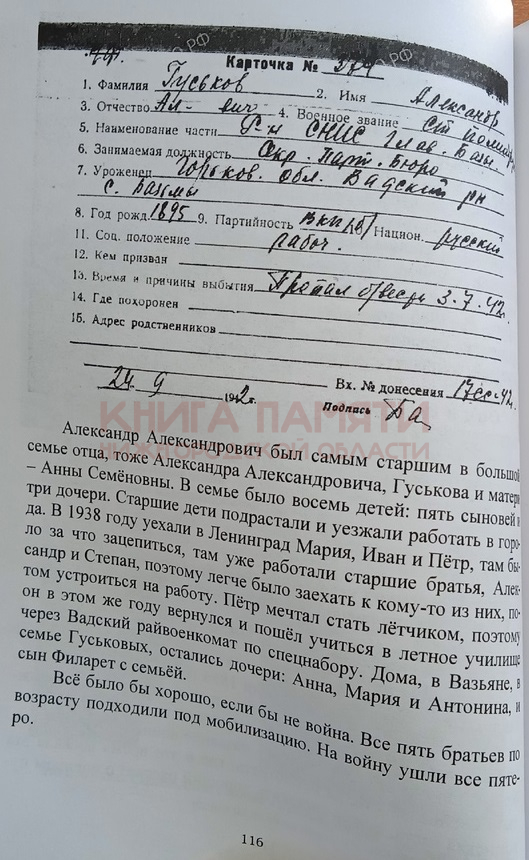 Карточка № 384
1. Фамилия Гуськов 2. Имя Александр
3. Отчество Ал-евич 4. Военное звание ст политрук
5. Наименование части СНИС Глав. Базы.
6. Занимаемая должность Секр. Парт. Бюро
7. Уроженец Горьков. обл. Вадский рн
с. Вазьмы
8. Год рожд. 1895 9. Партийность ВКП/б/ Национ. русский
11. Соц. положение рабоч.
12. Кем призван
13. Время и причины выбытия Пропал б/вести 3.7.42.
14. Где похоронен
15. Адрес родственников
24 9 1942г. Вх. № донесения 17сс-42.
Подпись
КНИГА ПАМЯТИ
НИЖЕГОРОДСКОЙ ОБЛАСТИ
Александр Александрович был самым старшим в большой
семье отца, тоже Александра Александровича, Гуськова и матери
– Анны Семёновны. В семье было восемь детей: пять сыновей и
три дочери. Старшие дети подрастали и уезжали работать в горо-
да. В 1938 году уехали в Ленинград Мария, Иван и Пётр, там бы-
ло за что зацепиться, там уже работали старшие братья, Алек-
сандр и Степан, поэтому легче было заехать к кому-то из них, по-
том устроиться на работу. Пётр мечтал стать лётчиком, поэтому
он в этом же году вернулся и пошёл учиться в летное училище
через Вадский райвоенкомат по спецнабору. Дома, в Вазьяне, в
семье Гуськовых, остались дочери: Анна, Мария и Антонина, и
сын Филарет с семьёй.
Всё было бы хорошо, если бы не война. Все пять братьев по
возрасту подходили под мобилизацию. На войну ушли все пяте-
ро.
116